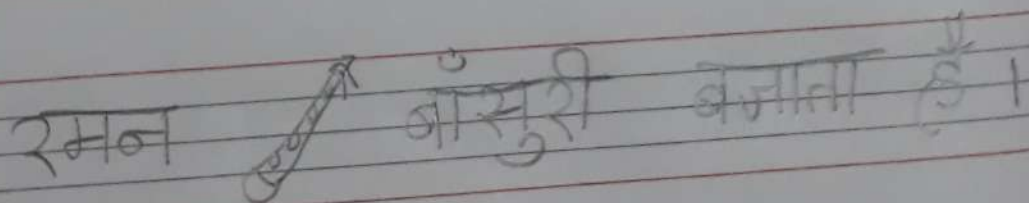 रमन बाँसुरी बजाता है।